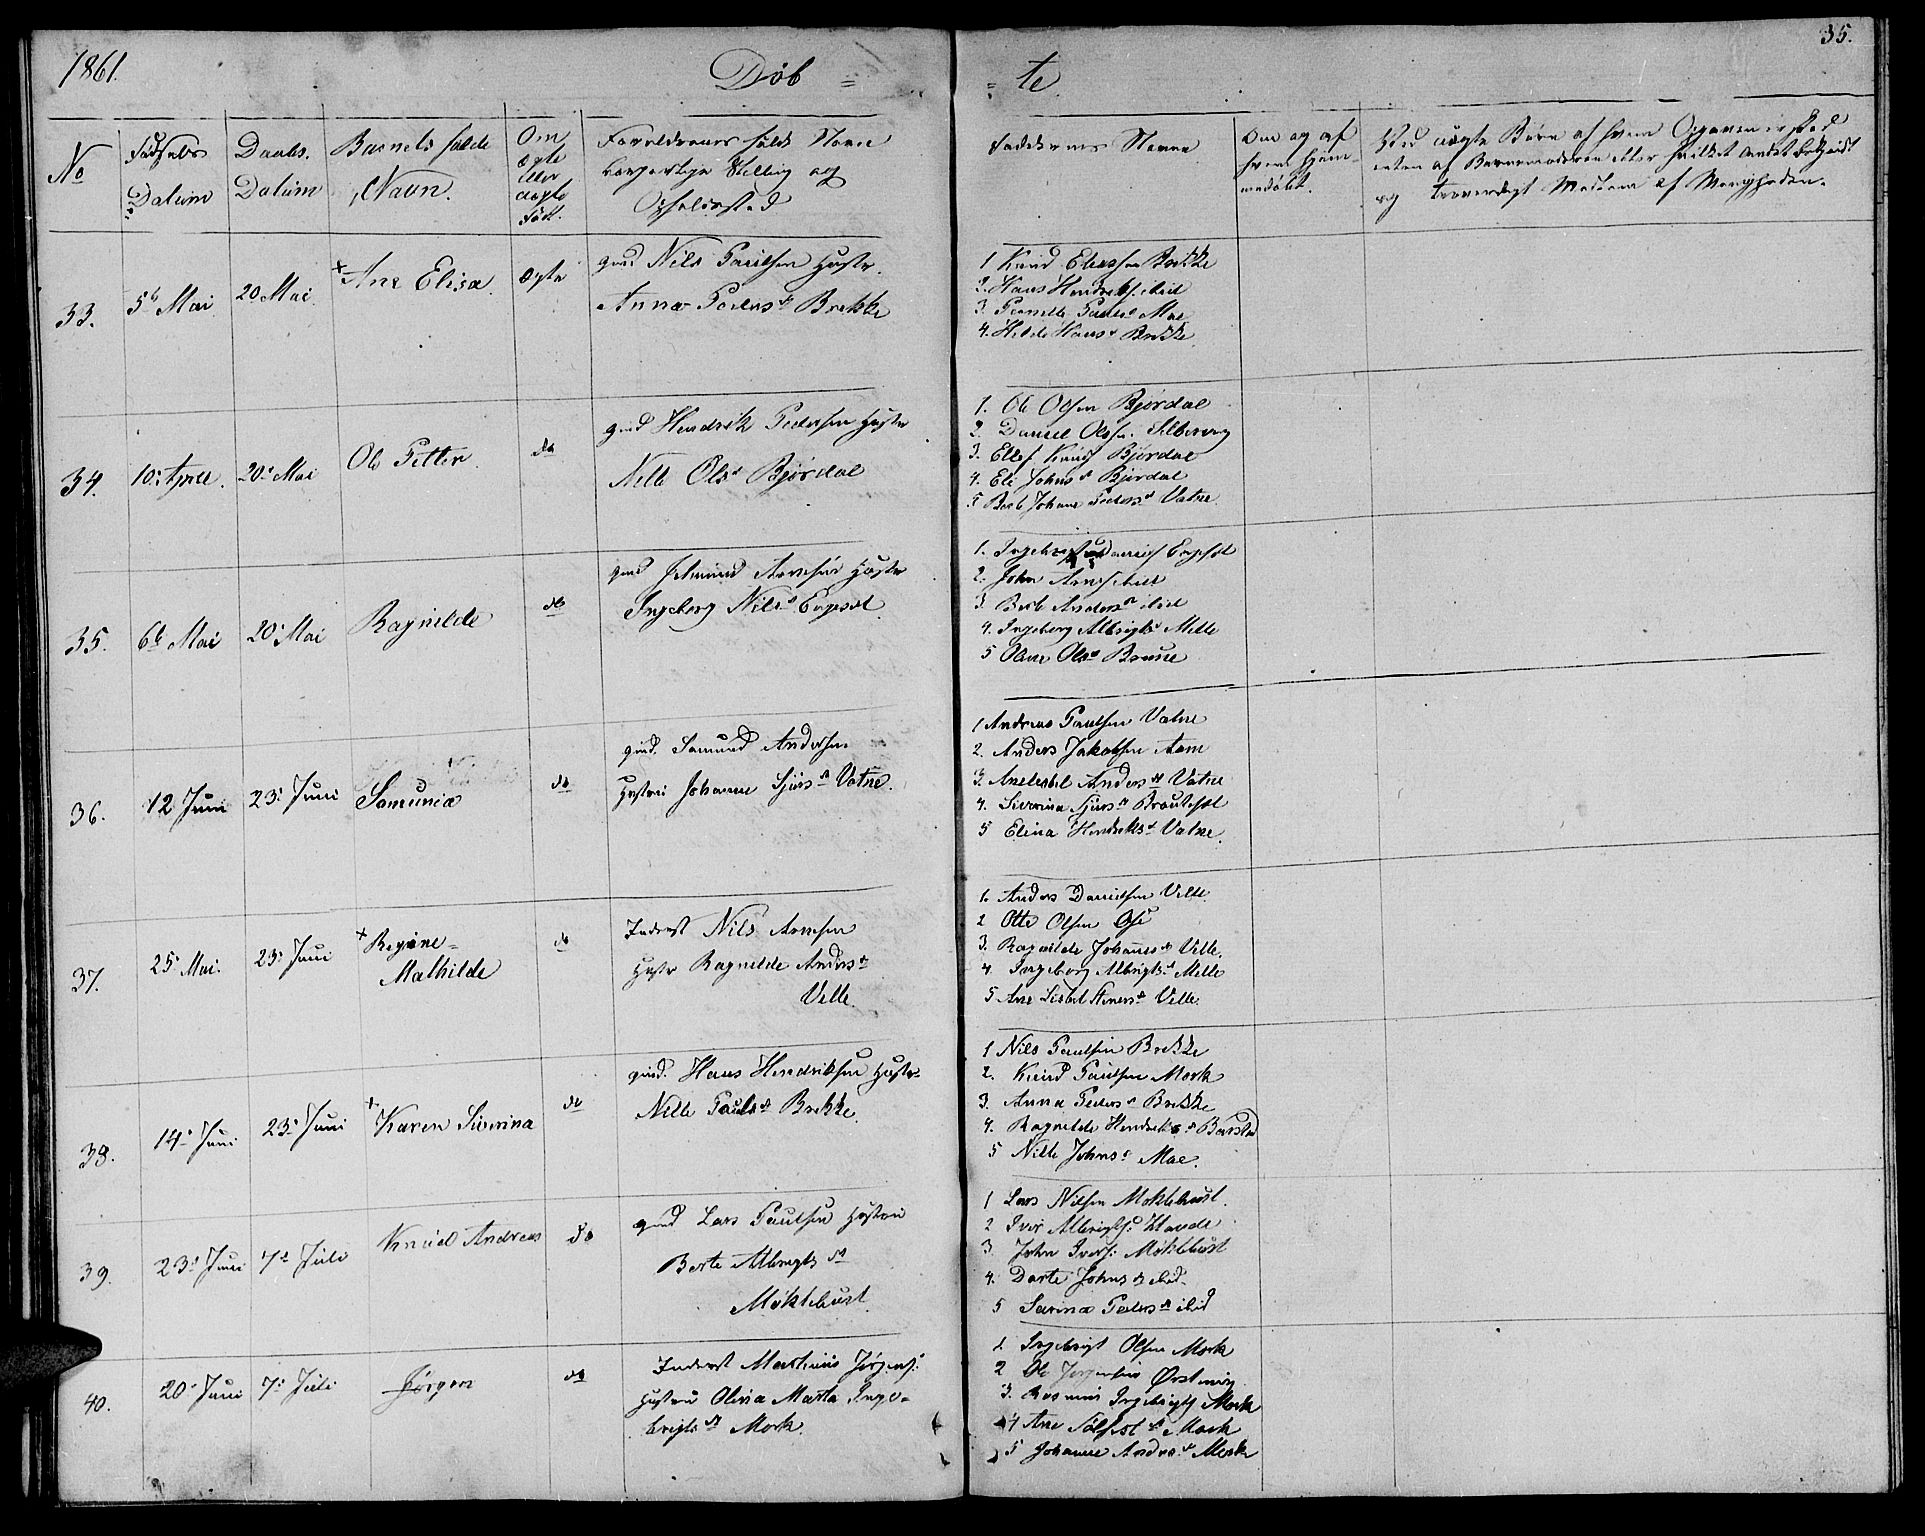 1861.
Döb = = te
35.
No
Fødsels Datum
Daabs. Datum
Barnets fulde Navn.
Om ægte eller uægte Født.
Forældrenes fulde Navne borgerlige Stilling og Opholdssted
Faddernes Navne
Om og af hvem hjemmedøbt.
Ved uægte Børn af hvem Opgaven er skeet
enten af Barnemoderen eller hvilket andet bekjendt
og troværdigt Medlem af Menigheden.
33. 5te Mai 20 Mai. + Ane Elisa ægte
gmd Nils Paulsen Hustr.
Anna Peders d Brekke
1 Knud Eliassen Brekke
2. Hans Hendriks. ibid
3. Pernille Peders d Mae
4. Hilde Hans d Brekke
34. 10. Aprill. 20. Mai Ole Petter. do
gmd Hendrik Pedersen Hustr
Nille Ols d Bjørdal
1. Ole Olsen Bjørdal
2. Daniel Olsen
3. Ellef Knuds Bjørdal
4. Eli Johns d Bjørdal
5 Berte Johane Peders d Vatne.
35. 6te Mai 20. Mai Ragnilde do
gmd Arnesen Hustr
Ingeborg Nils d Engeset
1. Daniels Engeset
2. John Arnes ibid
3. Berte Anders d ibid
4. Ingeborg Albrigts d Melle
5 Oline Ols d Brune
36. 12 Juni 23. Juni Samunia do
gmd. Samund Andersen
Hustru Johanne Sjurs d Vatne.
1 Andreas Paulsen Vatne
2. Anders Jakobsen Aam
3. Anelisbet Anders d Vatne
4. Siverina Sjurs d Brauteset
5 Elina Hendriks d Vatne.
37. 25. Mai. 23. Juni + Regine= Mathilde do
Inderst Nils Arnesen
Hustr Ragnilde Anders d
Velle.
1. Anders Danielsen Velle.
2 Otte Olsen
3. Ragnilde Johannes d Velle.
4. Ingeborg Albrigts d Melle
5 Ane Lisbet Steners d Velle.
38. 14. Juni 23. Juni + Karen Siverina do
gmd. Hans Hendriksen Hustr.
Nille Pauls d Brekke.
1 Nils Paulsen Brekke
2. Knud Paulsen Mork
3. Anna Peders d Brekke
4. Ragnilde Hendriks d Barstad
5 Nille Johns d Mae.
39. 23. Juni 7. Juli Knud Andreas do
gmd Lars Paulsen Hustru
Berte Albrigts d
Møklebust.
1 Lars Nilsen Møklebust.
2 Iver Albrigts. Hovde
3. John Ivers. Møklebust
4. Dorte Johns d ibid.
5 Serina Peders d ibid
40. 20. Juni 7. Juli Jørgen do
Inderst Martinus Jørgens.
Hustru Olina Marta Inge-
brigts d Mork.
1 Ingebrigt Olsen Mork
2 Ole Jørgensen
3. Rasmus Ingebrigts Mork
4 Ane d Mork
5 Johanne Andrs. d Mork